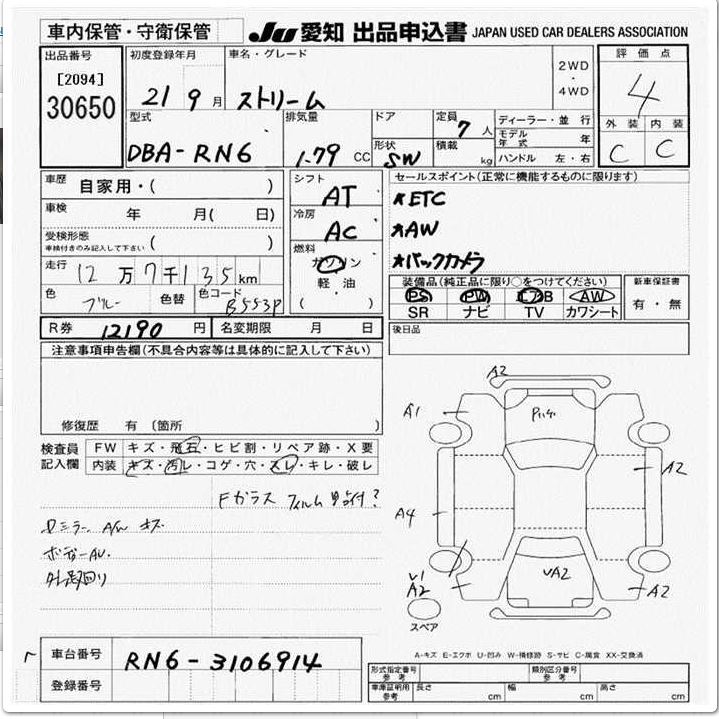 車内保管・守衛保管
JU 愛知 出品申込書 JAPAN USED CAR DEALERS ASSOCIATION
出品番号
[2094]
30650
初度登録年月
21 9 月
車名・グレード
ストリーム
2WD
・
4WD
評価点
4
外装 内装
C C
型式
DBA-RN6
排気量
1.79 CC
ドア
形状
SW
定員
7 人
積載
kg
ディーラー・並行
モデル年式 年
ハンドル 左・右
車歴
自家用・( )
車検
年 月( 日)
受検形態
車検付きのみ記入して下さい ( )
走行
12万7千135km
色
ブルー
色替
色コード
B553P
シフト
AT
冷房
AC
燃料
ガソリン
軽・油
( )
セールスポイント(正常に機能するものに限ります)
*ETC
*AW
*バックカメラ
装備品(純正品に限り○をつけてください)
PS PW エアB AW
SR ナビ TV カワシート
新車保証書
有・無
R券 12190 円
名変期限 月 日
後日品
注意事項申告欄(不具合内容等は具体的に記入して下さい)
修復歴 有 (箇所 )
検査員
記入欄
FW キズ・飛石・ヒビ割・リペア跡・X要
内装 キズ・汚レ・コゲ・穴・スレ・キレ・破レ
Fガラス フィルム 貼付?
ドミラー A/W キズ
ボデーAU.
A2
A1
A2
A4
√A2
U1
A2
A2
スペア
A-キズ E-エクボ U-凹み W-補修跡 S-サビ C-腐食 XX-交換済
車台番号
RN6-3106914
登録番号
形式指定番号
参考
類別区分番号
参考
車庫証明用
参考
長さ cm
幅 cm
高さ cm